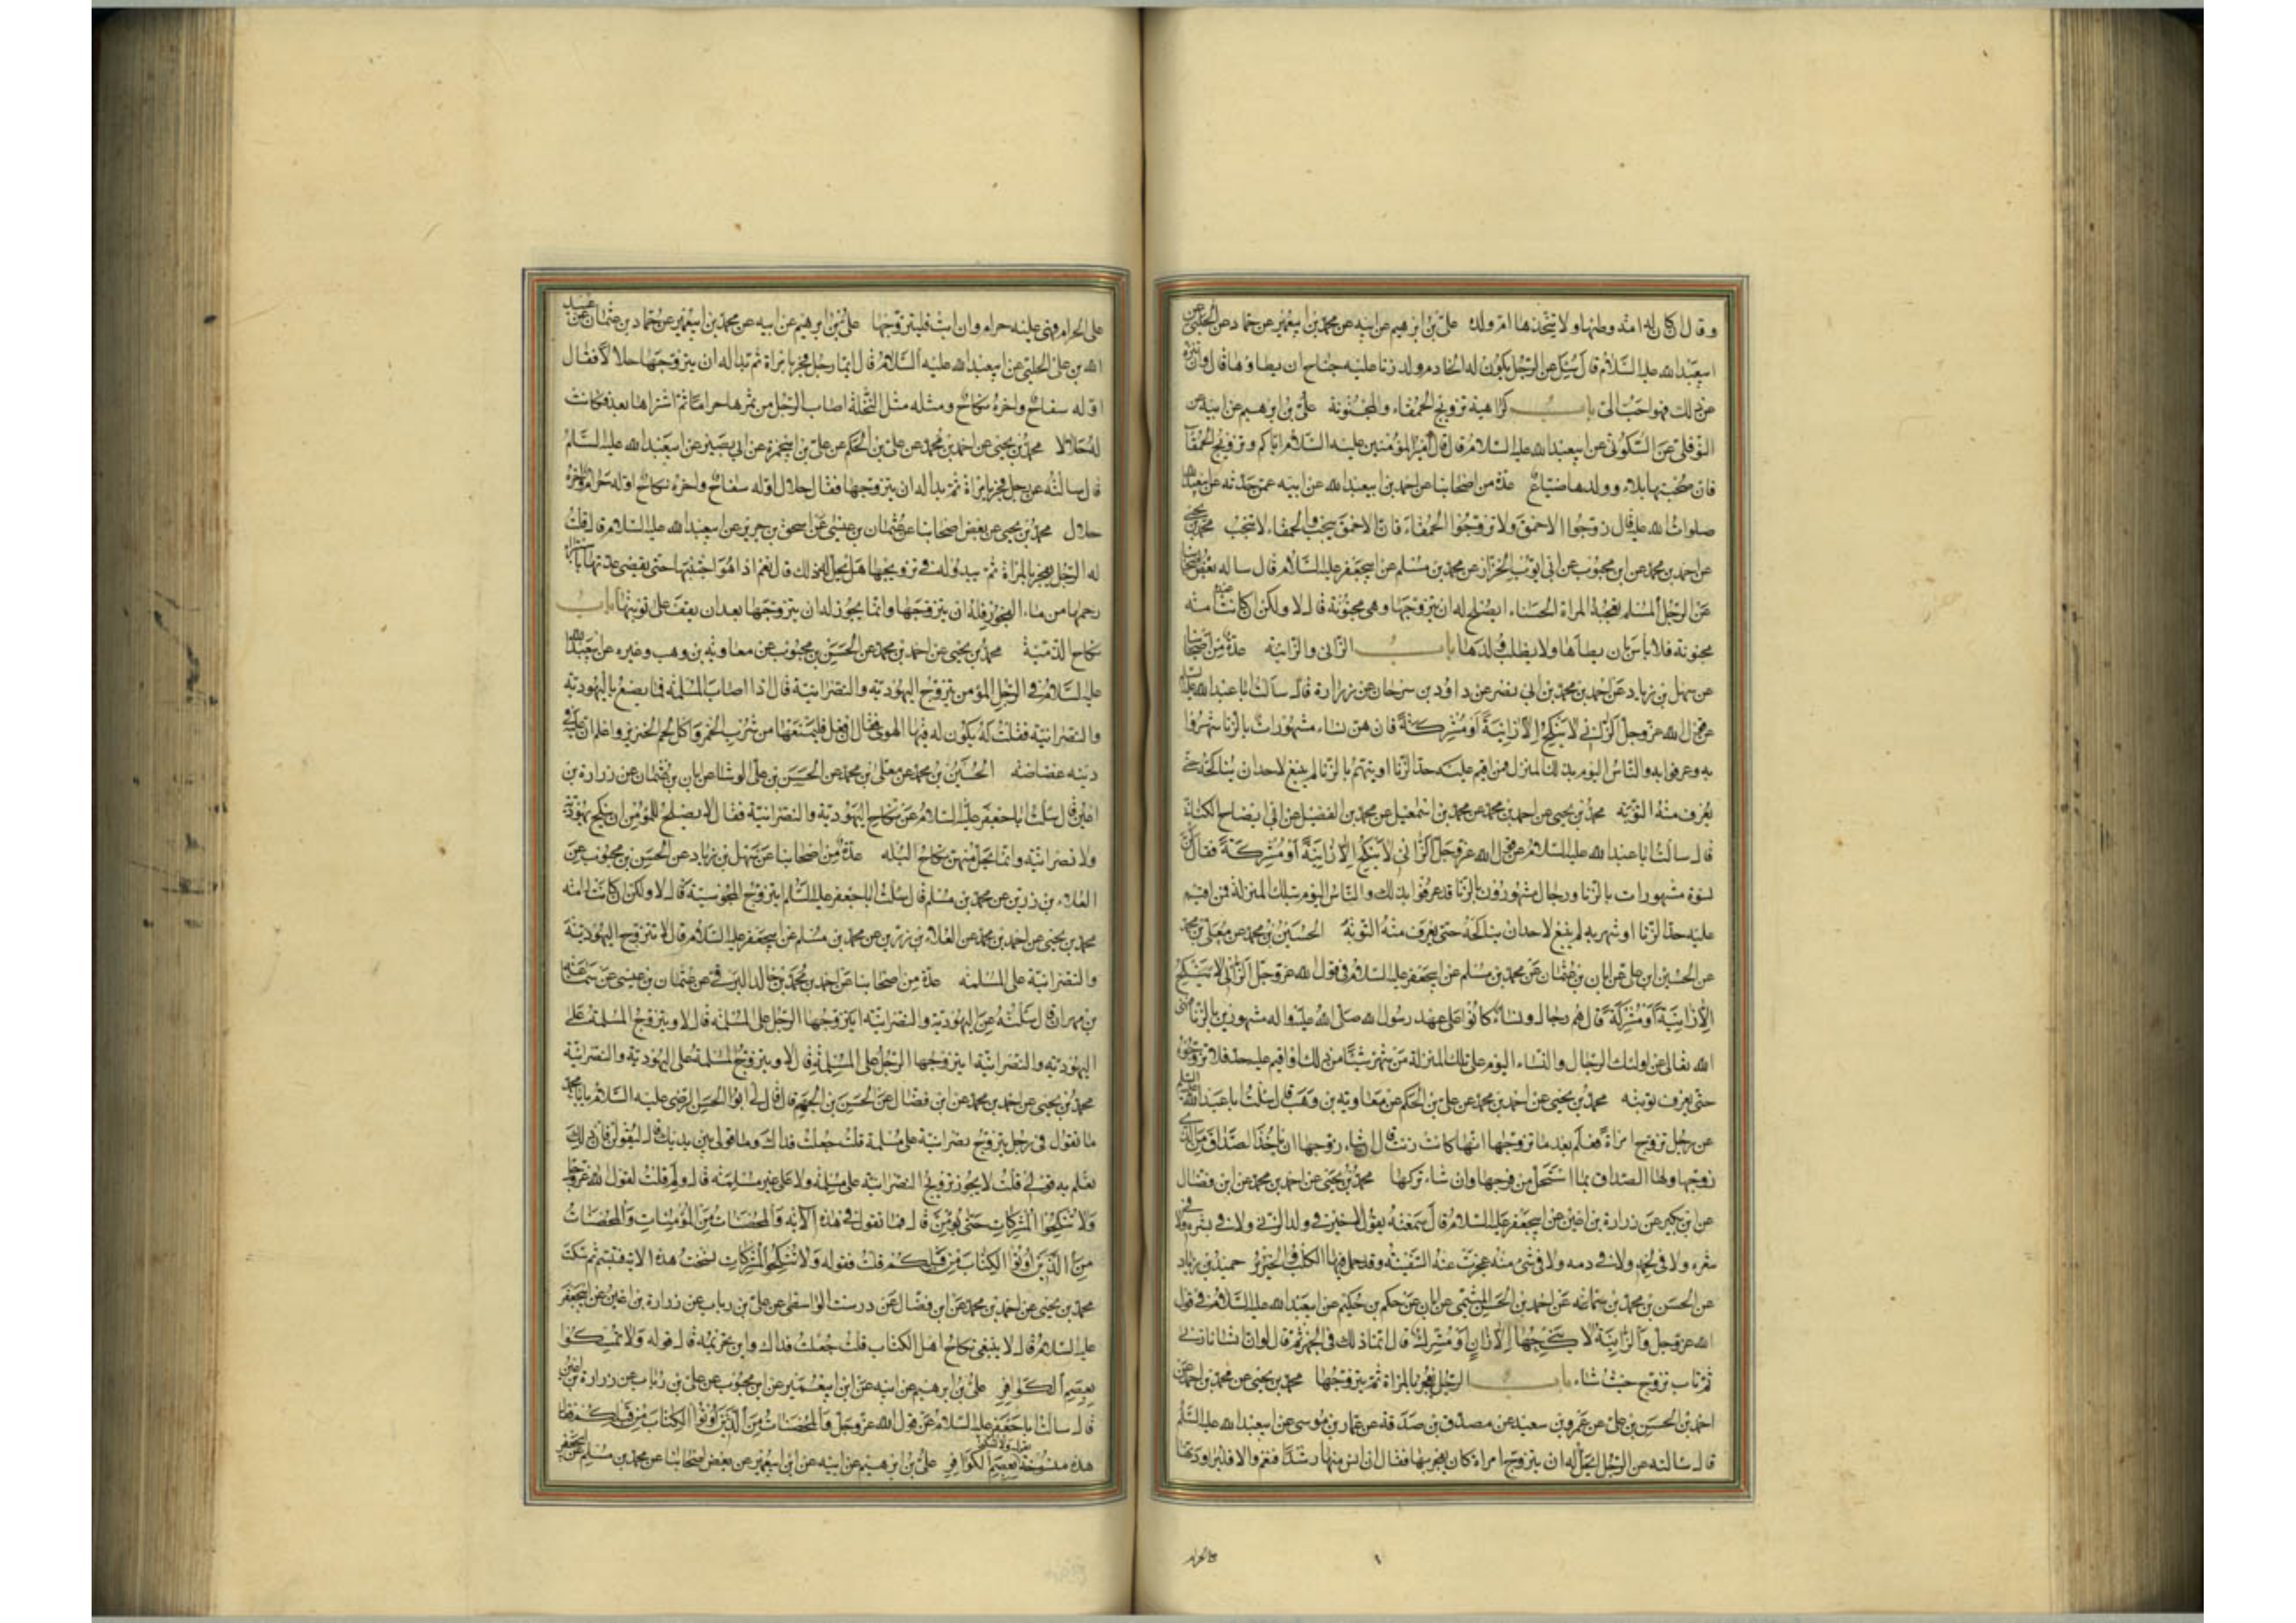 وقال ان كان له امة وطئها ولا يتخذها ام ولده علي بن ابرهيم عن ابيه عن محمد بن ابي عمير عن حماد عن الحلبي عن
ابي عبد الله عليه السلام قال سئل عن الرجل يكون له الخادم ولد زنا عليه جناح ان يطاوها قال لا وان تنزه
عن ذلك فهو احب الى باب كراهية تزويج الحمقاء والمجنونة علي بن ابرهيم عن ابيه عن
النوفلي عن السكوني عن ابي عبد الله عليه السلام قال قال امير المؤمنين عليه السلام اياكم وتزويج الحمقا
فان صحبتها بلاء وولدها ضياع عدة من اصحابنا عن احمد بن ابي عبد الله عن ابيه عمن حدثه عن ابي عبد الله
صلوات الله عليه قال زوجوا الاحمق ولا تزوجوا الحمقاء فان الاحمق ينجب والحمقاء لا تنجب محمد بن يحيى
عن احمد بن محمد عن ابن محبوب عن ابي ايوب الخزاز عن محمد بن مسلم عن ابي جعفر عليه السلام قال ساله بعض اصحابنا
عن الرجل المسلم تعجبه المراة الحسناء ايصلح له ان يتزوجها وهي مجنونة قال لا ولكن ان كانت عنده امة
مجنونة فلا باس بان يطأها ولا يطلب ولدها باب الزاني والزانية عدة من اصحابنا
عن سهل بن زياد عن احمد بن محمد بن ابي نصر عن داود بن سرحان عن زرارة قال سالت ابا عبد الله عليه السلام
عن قول الله عز وجل الزاني لا ينكح الا زانية او مشركة قال هن نساء مشهورات بالزنا شهروا
به وعرفوا به والناس اليوم بذلك المنزل فمن اقيم عليه حد الزنا او متهم بالزنا لم ينبغ لاحد ان يناكحه حتى
يعرف منه التوبة محمد بن يحيى عن احمد بن محمد عن محمد بن اسمعيل عن محمد بن الفضيل عن ابي الصباح الكناني
قال سالت ابا عبد الله عليه السلام عن قول الله عز وجل الزاني لا ينكح الا زانية او مشركة فقال كن
نسوة مشهورات بالزنا ورجال مشهورون بالزنا قد عرفوا بذلك والناس اليوم بتلك المنزلة فمن اقيم
عليه حد الزنا او شهر به لم ينبغ لاحد ان يناكحه حتى يعرف منه التوبة الحسين بن محمد عن معلى بن محمد
عن الحسن بن علي عن ابان بن عثمان عن محمد بن مسلم عن ابي جعفر عليه السلام في قول الله عز وجل الزاني لا ينكح
الا زانية او مشركة قال هم رجال ونساء كانوا على عهد رسول الله صلى الله عليه واله مشهورين بالزنا فنهى
الله تعالى عن اولئك الرجال والنساء اليوم على تلك المنزلة من شهر شيئا من ذلك او اقيم عليه حد فلا تزوجوه
حتى يعرف توبته محمد بن يحيى عن احمد بن محمد عن علي بن الحكم عن معاوية بن وهب قال سئلت ابا عبد الله عليه السلم
عن رجل تزوج امراة فعلم بعد ما تزوجها انها كانت زنت قال ان شاء زوجها ان ياخذ الصداق من الذي
زوجها ولها الصداق بما استحل من فرجها وان شاء تركها محمد بن يحيى عن احمد بن محمد عن ابن فضال
عن ابن بكير عن زرارة بن اعين عن ابي جعفر عليه السلام قال سمعته يقول لا خير في ولد الزنى ولا في بشره ولا في
شعره ولا في لحمه ولا في دمه ولا في شئ منه عجزت عنه السفينة وقد حمل فيها الكلب والخنزير حميد بن زياد
عن الحسن بن محمد بن سماعة عن احمد بن الحسن الميثمي عن ابان عن حكم بن حكيم عن ابي عبد الله عليه السلام في قول
الله عز وجل والزانية لا ينكحها الا زان او مشرك قال انما ذلك في الجهر ثم قال لو ان انسانا زنى
ثم تاب تزوج حيث شاء باب الرجل يفجر بالمراة ثم يتزوجها محمد بن يحيى عن محمد بن احمد عن
احمد بن الحسن بن علي عن عمرو بن سعيد عن مصدق بن صدقة عن عمار بن موسى عن ابي عبد الله عليه السلم
قال سالته عن الرجل ايحل له ان يتزوج امراة كان يفجر بها فقال ان انس منها رشدا فنعم والا فليراودنها
على الحرام
على الحرام فهي عليه حرام وان ابت فليتزوجها علي بن ابرهيم عن ابيه عن محمد بن ابي عمير عن حماد بن عثمان عن عبيد
الله بن علي الحلبي عن ابي عبد الله عليه السلام قال ايما رجل فجر بامراة ثم بدا له ان يتزوجها حلالا فقال
اوله سفاح واخره نكاح ومثله مثل النخلة اصاب الرجل من ثمرها حراما ثم اشتراها بعد فكانت
له حلالا محمد بن يحيى عن احمد بن محمد عن علي بن الحكم عن علي بن ابي حمزة عن ابي بصير عن ابي عبد الله عليه السلم
قال سالته عن رجل فجر بامراة ثم بدا له ان يتزوجها فقال حلال اوله سفاح واخره نكاح اوله حرام واخره
حلال محمد بن يحيى عن بعض اصحابنا عن عثمان بن عيسى عن اسحق بن جرير عن ابي عبد الله عليه السلام قال قلت
له الرجل يفجر بالمراة ثم يبدو له في تزويجها هل يحل له ذلك قال نعم اذا هو اجتنبها حتى تنقضي عدتها باستبراء
رحمها من ماء الفجور فله ان يتزوجها وانما يجوز له ان يتزوجها بعد ان يقف على توبتها باب
نكاح الذمية محمد بن يحيى عن احمد بن محمد عن الحسن بن محبوب عن معاوية بن وهب وغيره عن ابي عبد الله
عليه السلام في الرجل المؤمن يتزوج اليهودية والنصرانية قال اذا اصاب المسلمة فما يصنع باليهودية
والنصرانية فقلت له يكون له فيها الهوى فقال ان فعل فليمنعها من شرب الخمر واكل لحم الخنزير واعلم ان عليه في
دينه غضاضة الحسين بن محمد عن معلى بن محمد عن الحسن بن علي الوشا عن ابان بن عثمان عن زرارة بن
اعين قال سئلت ابا جعفر عليه السلام عن نكاح اليهودية والنصرانية فقال لا يصلح للمؤمن ان ينكح يهودية
ولا نصرانية وانما تحل منهن نكاح البله عدة من اصحابنا عن سهل بن زياد عن الحسن بن محبوب عن
العلاء بن رزين عن محمد بن مسلم قال سئلت ابا جعفر عليه السلم ايتزوج المجوسية قال لا ولكن ان كانت له امة
محمد بن يحيى عن احمد بن محمد عن العلاء بن رزين عن محمد بن مسلم عن ابي جعفر عليه السلام قال لا تتزوج اليهودية
والنصرانية على المسلمة عدة من اصحابنا عن احمد بن محمد بن خالد البرقي عن عثمان بن عيسى عن سماعة
بن مهران قال سئلته عن اليهودية والنصرانية ايتزوجها الرجل على المسلمة قال لا ويتزوج المسلمة على
اليهودية والنصرانية ايتزوجها الرجل على المسلمة قال لا ويتزوج المسلمة على اليهودية والنصرانية
محمد بن يحيى عن احمد بن محمد عن ابن فضال عن الحسن بن الجهم قال قال لي ابو الحسن الرضي عليه السلام يا با محمد
ما تقول في رجل يتزوج نصرانية على مسلمة قلت جعلت فداك وما قولي بين يديك قال لتقولن فان ذلك
تعلم به قولي قلت لا يجوز تزويج النصرانية على مسلمة ولا على غير مسلمة قال ولم قلت لقول الله عز وجل
ولا تنكحوا المشركات حتى يؤمن قال فما تقول في هذه الاية والمحصنات من المؤمنات والمحصنات
من الذين اوتوا الكتاب من قبلكم قلت فقوله ولا تنكحوا المشركات نسخت هذه الاية فتبسم ثم سكت
محمد بن يحيى عن احمد بن محمد عن ابن فضال عن درست الواسطي عن علي بن رباب عن زرارة بن اعين عن ابي جعفر
عليه السلام قال لا ينبغي نكاح اهل الكتاب قلت جعلت فداك واين تحريمه قال قوله ولا تمسكوا
بعصم الكوافر علي بن ابرهيم عن ابيه عن ابن ابي عمير عن ابن محبوب عن علي بن رئاب عن زرارة بن اعين
قال سالت ابا جعفر عليه السلام عن قول الله عز وجل والمحصنات من الذين اوتوا الكتاب من قبلكم فقال
هذه منسوخة بقوله ولا تمسكوا بعصم الكوافر علي بن ابرهيم عن ابيه عن ابن ابي عمير عن بعض اصحابنا عن محمد بن مسلم عن ابي جعفر